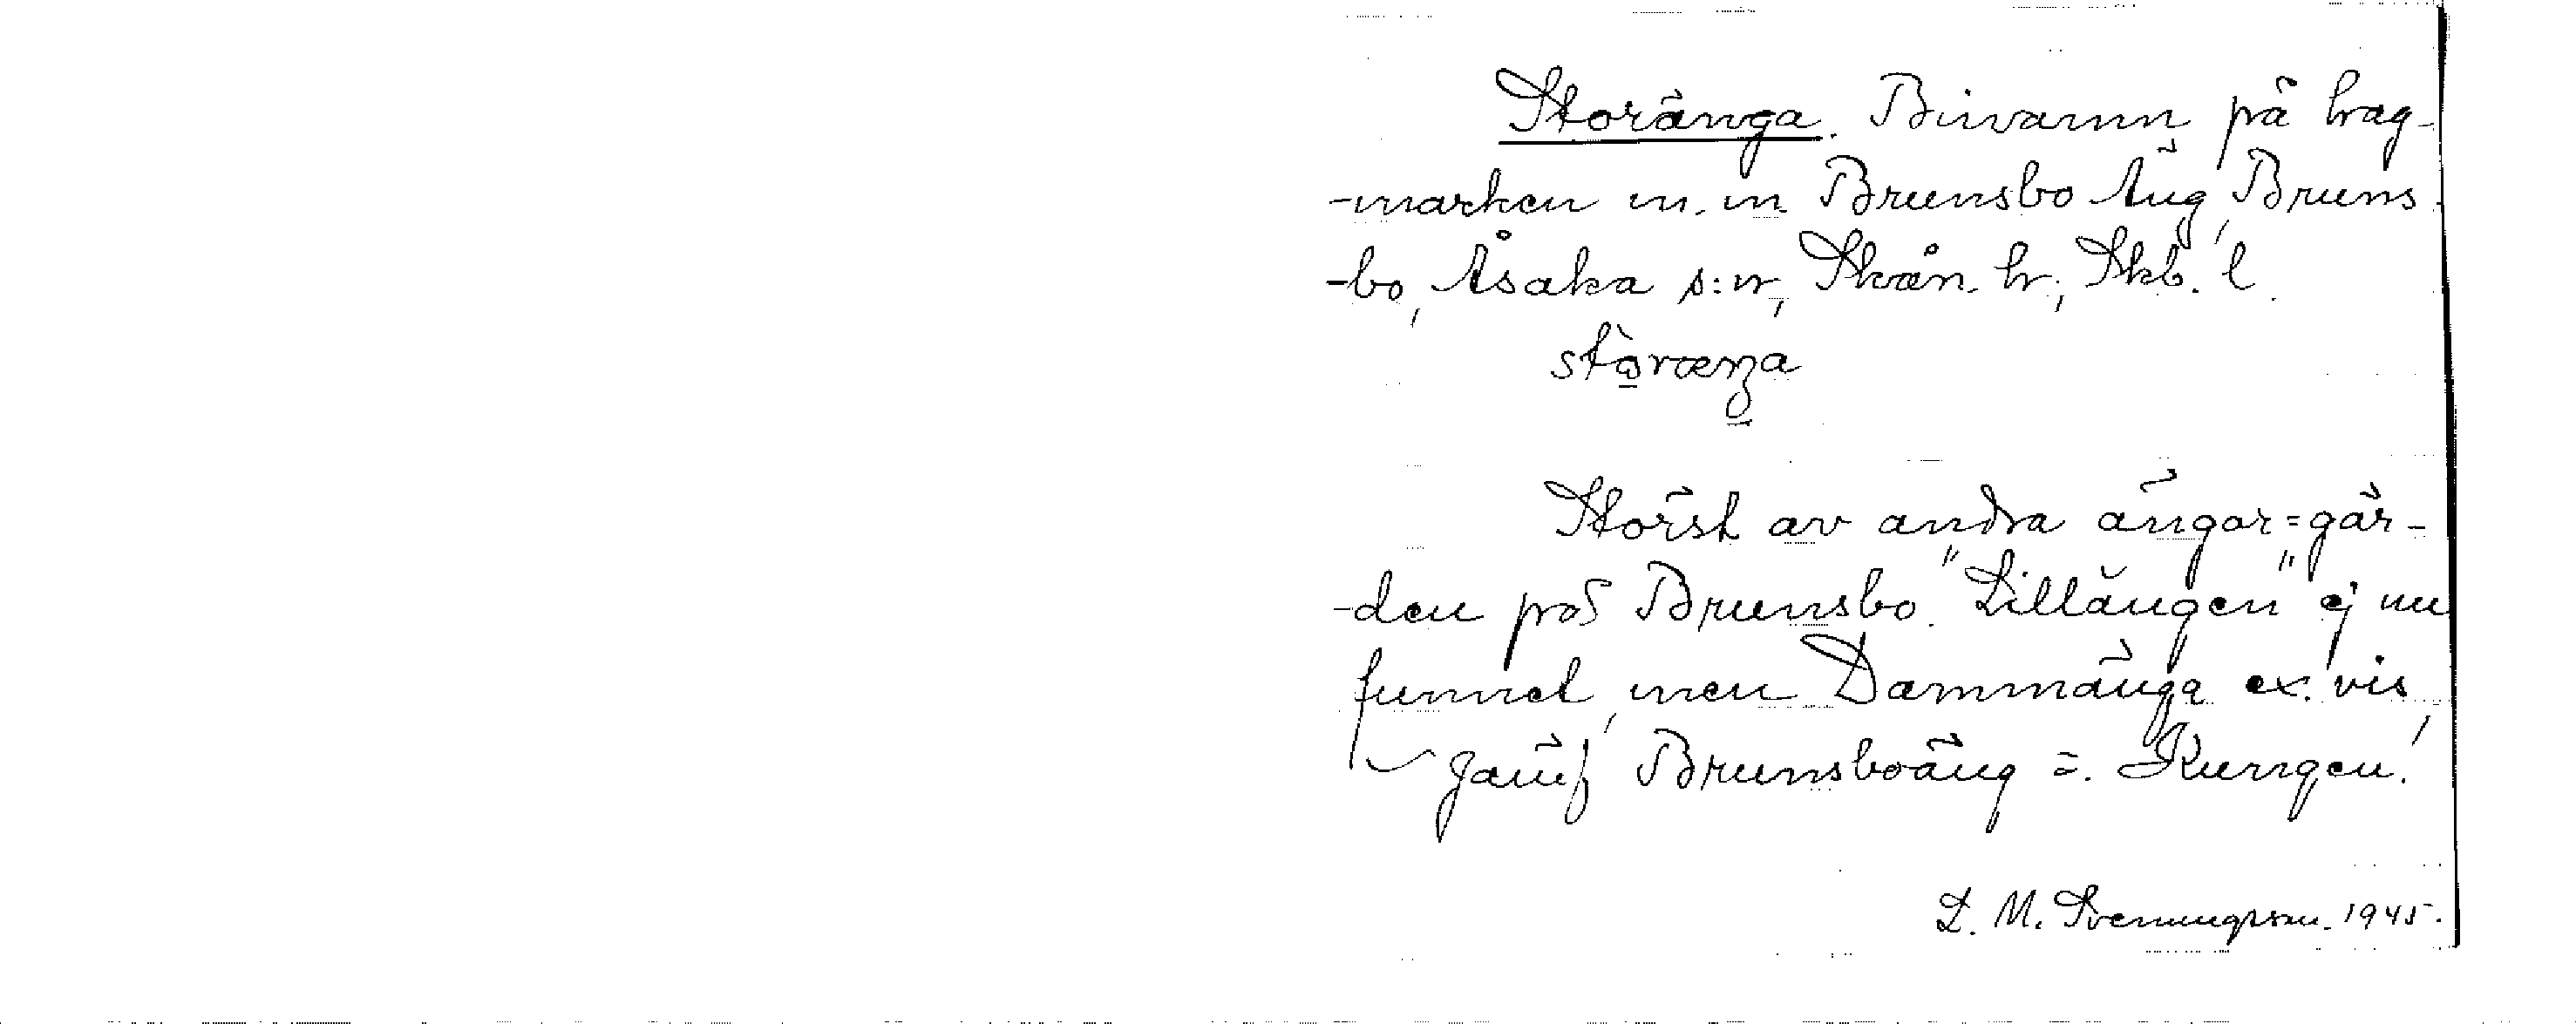 Storänga. Binamn på hag-
-marken m. m. Brunsbo Äng, Bruns
-bo, Åsaka s:n, Skån. h., Skb. l.
Störst av andra ängar=gär-
-den på Brunsbo. "Lillängen" ej nu
funnet, men Dammänga ex. vis,
Jämf Brunsboäng =. Kungen.
L. M. Svenungsson. 1945.